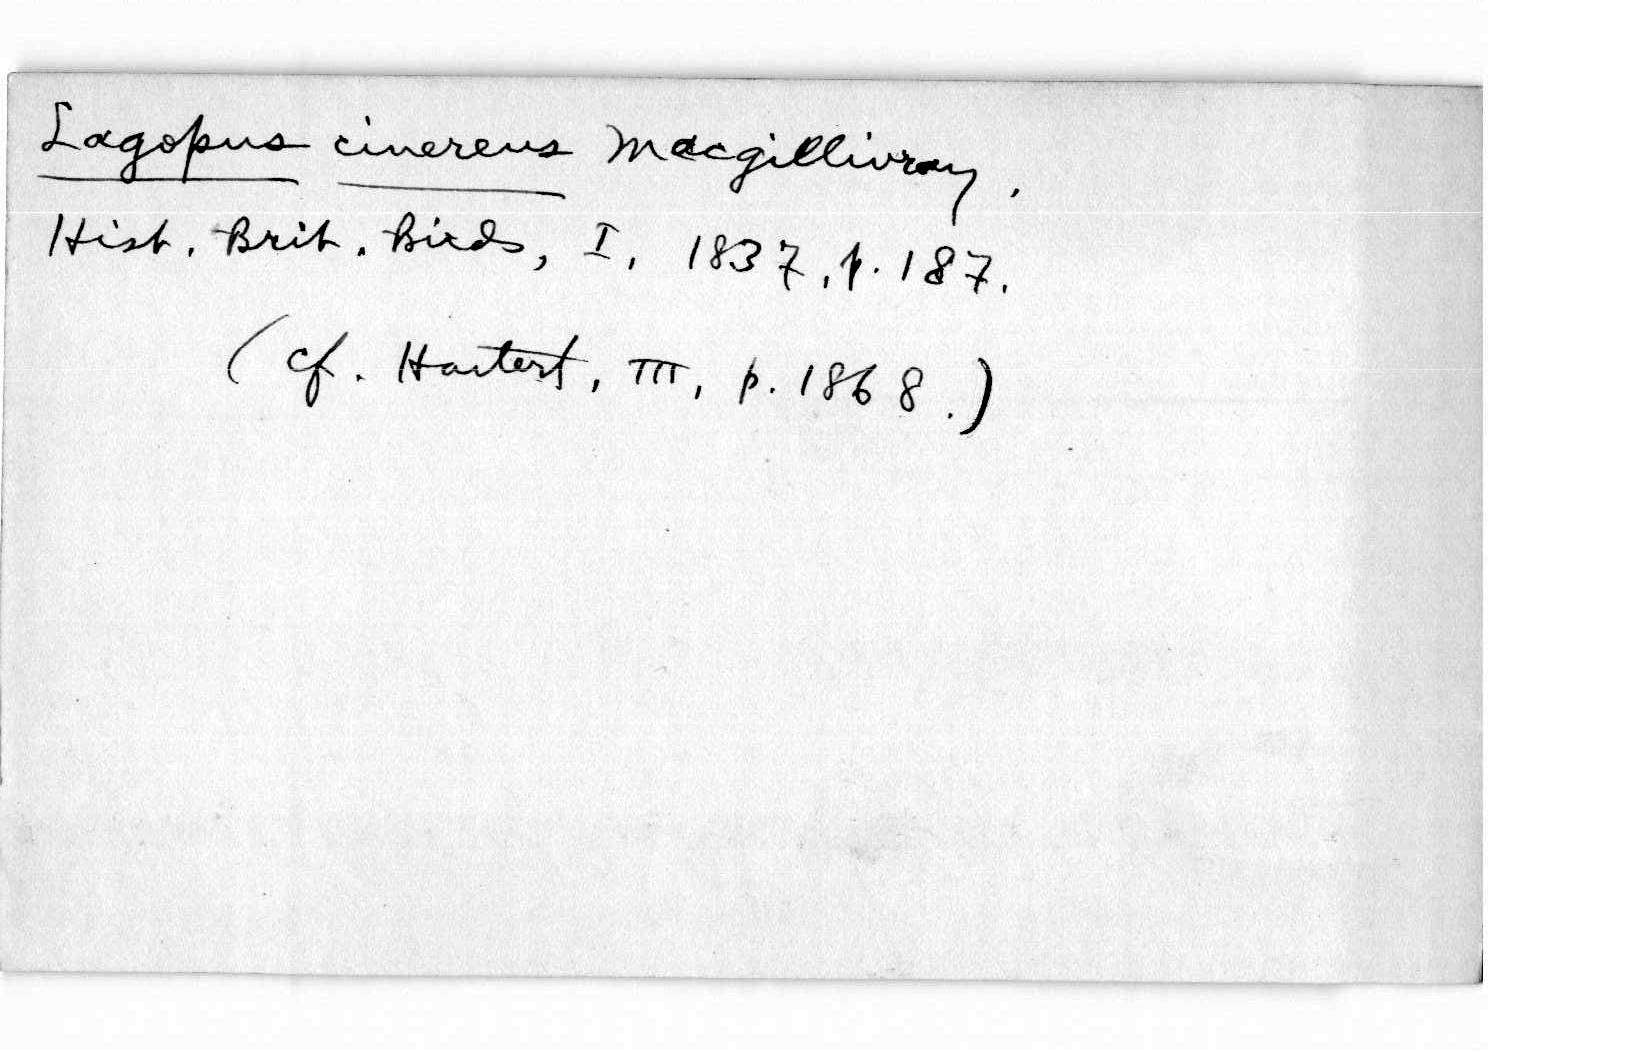 Lagopus cinereus Macgillivray.
Hist. Brit. Birds, I, 1837, p. 187.
(cf. Hartert, III, p. 1868.)